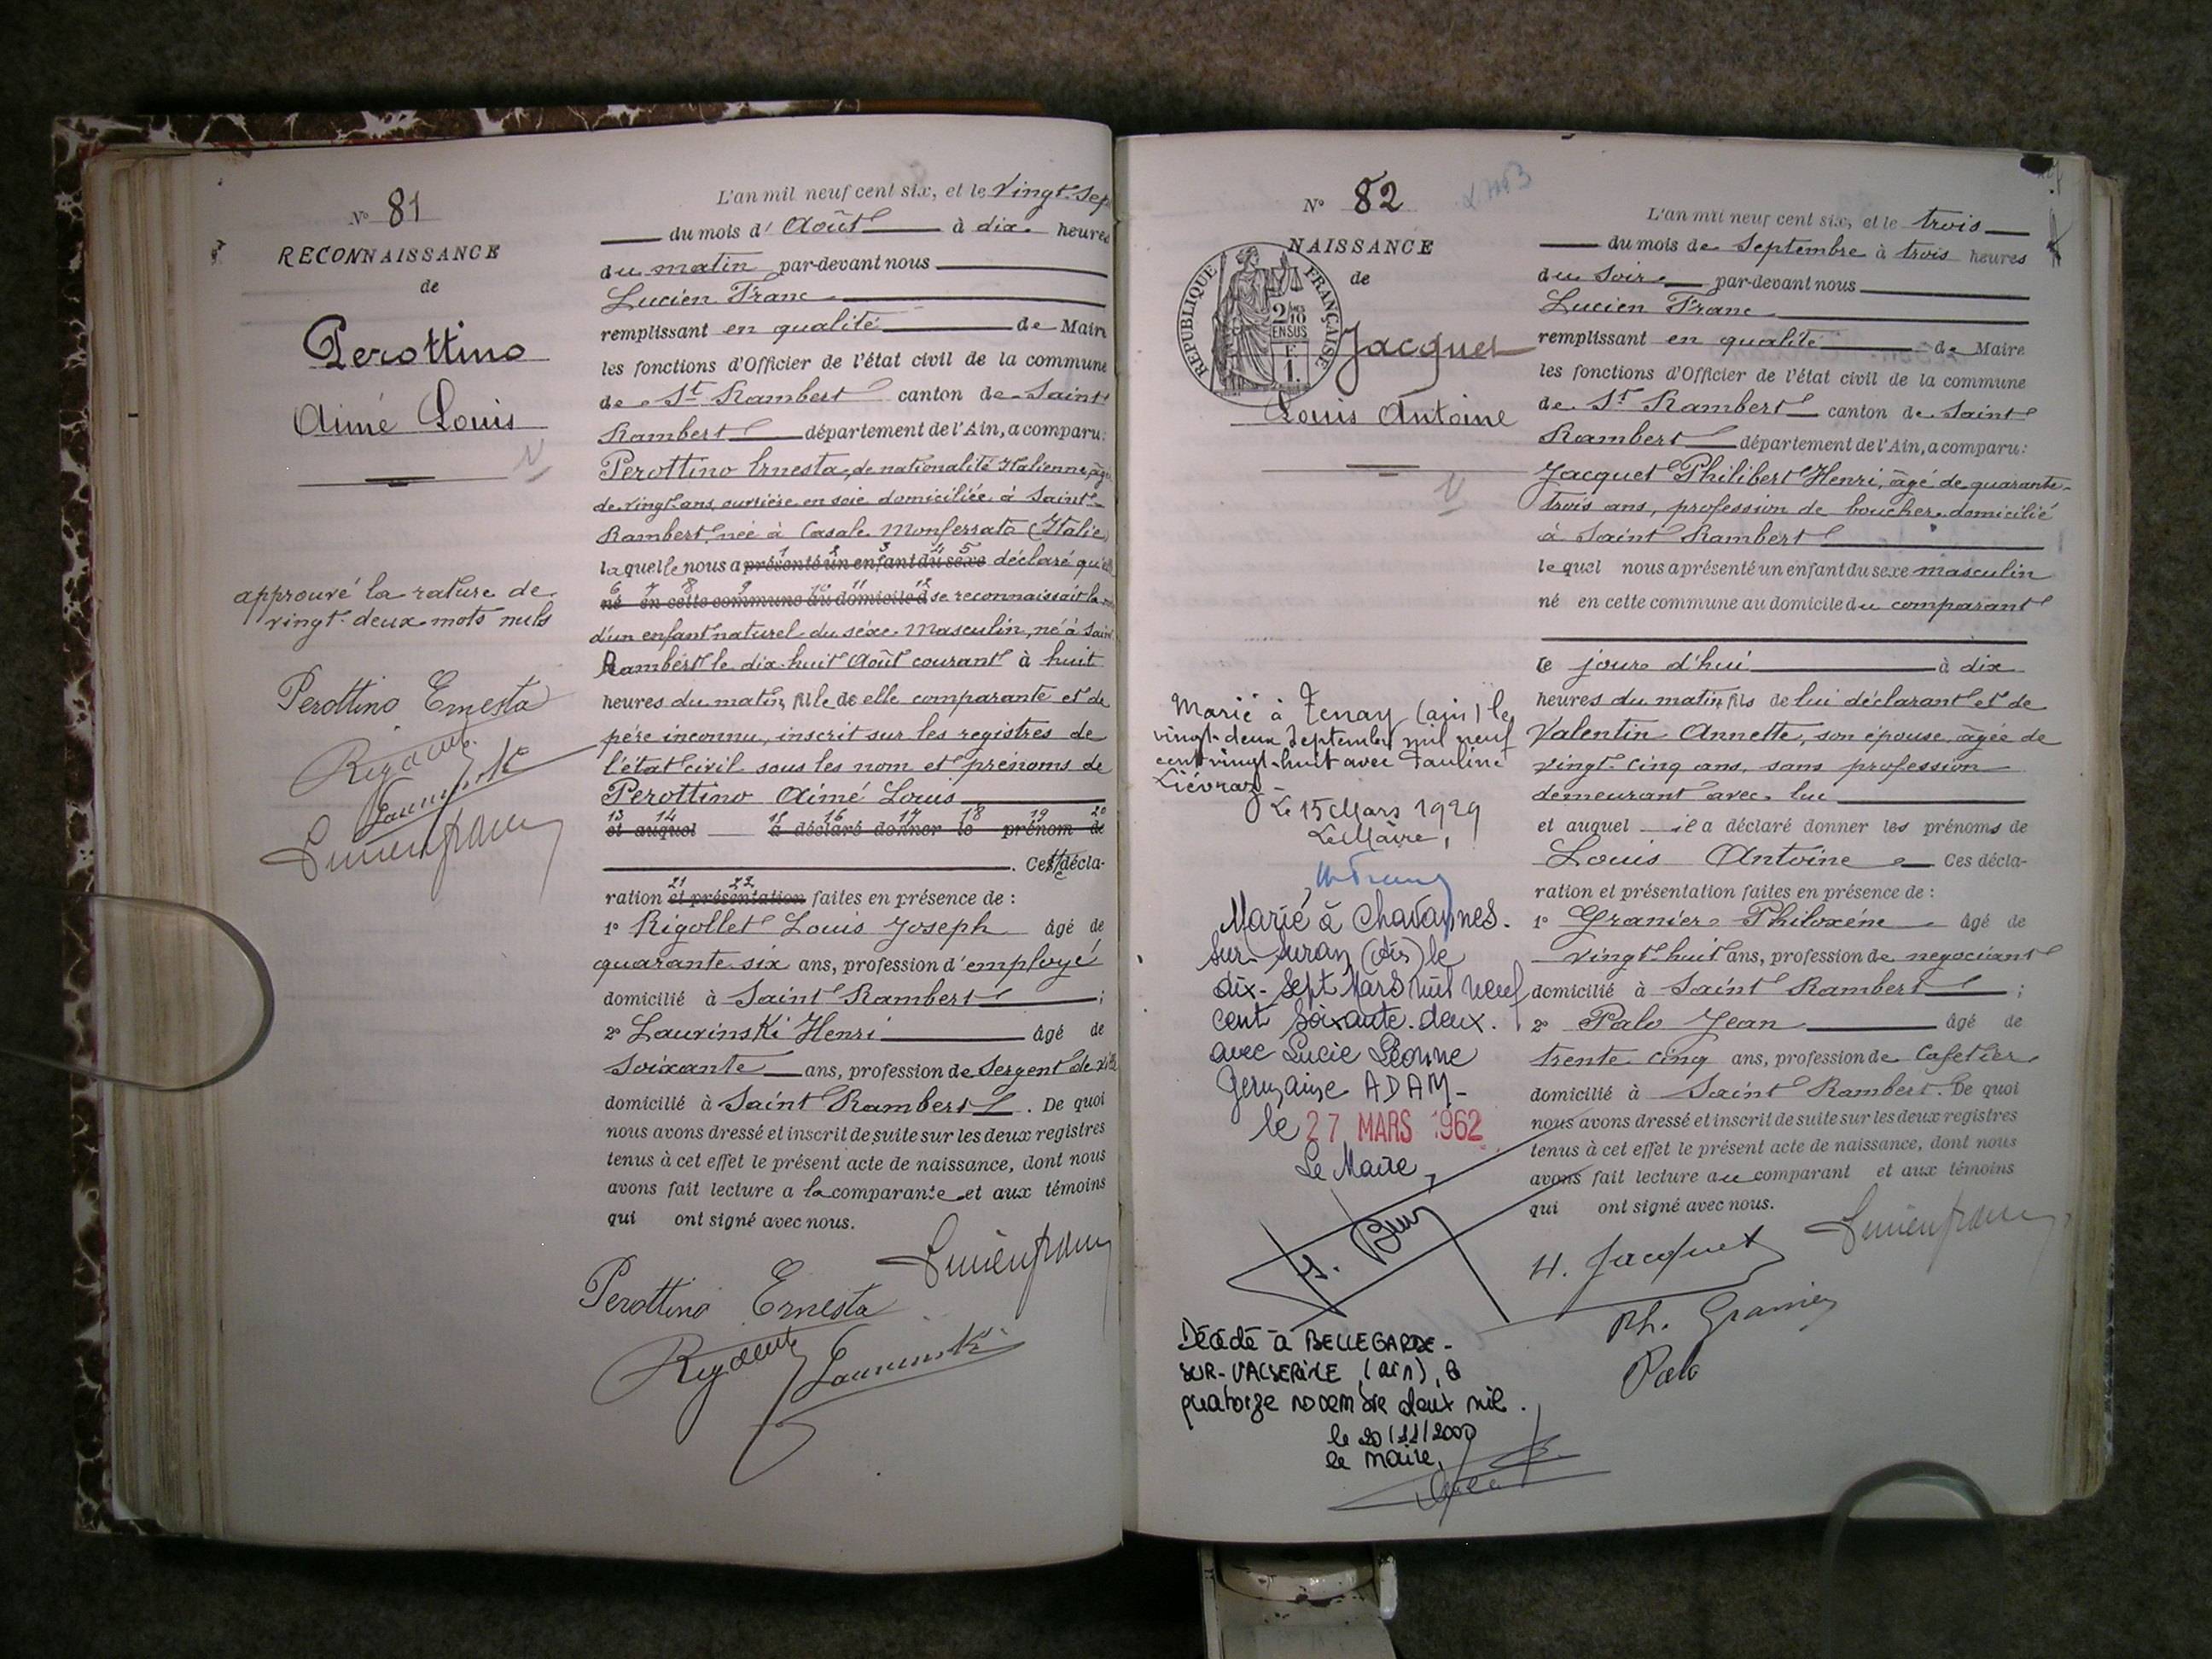 N° 81
RECONNAISSANCE
de
Perottino
Aimé Louis
approuvé la rature de
vingt-deux mots nuls
Perottino Ernesta
Lucien Franc
L'an mil neuf cent six, et le vingt-sep
du mois d' Août à dix heures
du matin par-devant nous
Lucien Franc
remplissant en qualité de Maire
les fonctions d'Officier de l'état civil de la commune
de St Rambert canton de Saint
Rambert département de l'Ain, a comparu:
Perottino Ernesta, de nationalité Italienne, âgée
de vingt ans, ouvrière en soie domiciliée à Saint-
Rambert, née à Casale Monferrato (Italie)
1 2 3 4 5
laquelle nous a présenté un enfant du sexe déclaré qu'elle
6 7 8 9 10 11 12
né en cette commune au domicile d se reconnaissait la
d'un enfant naturel du sexe masculin, né à Saint
Rambert le dix-huit Août courant à huit
heures du matin, fille de elle comparante et de
père inconnu, inscrit sur les registres de
l'état civil sous les nom et prénoms de
Perottino Aimé Louis
13 14 15 16 17 18 19 20
et auquel a déclaré donner le prénom de
. Cette décla-
21 22
ration et présentation faites en présence de :
1° Rigollet Louis Joseph âgé de
quarante six ans, profession d'employé
domicilié à Saint Rambert ;
2° Laurinski Henri âgé de
soixante ans, profession de Sergent de ville
domicilié à Saint Rambert. De quoi
nous avons dressé et inscrit de suite sur les deux registres
tenus à cet effet le présent acte de naissance, dont nous
avons fait lecture a la comparante et aux témoins
qui ont signé avec nous.
Lucien Franc
Perottino Ernesta
N° 82
NAISSANCE
de
REPUBLIQUE FRANÇAISE
2/10
EN SUS
F.
1.
Jacquet
Louis Antoine
Marié à Tenay (Ain) le
vingt-deux Septembre mil neuf
cent vingt-huit avec Pauline
Liévraz
Le 15 Mars 1929
Le Maire,
Marié à Chavannes-
sur-Suran (Ain) le
dix-sept Mars mil neuf
cent soixante-deux.
avec Lucie Léonne
Germaine ADAM-
le 27 MARS 1962
Le Maire,
Décédé à BELLEGARDE-
SUR-VALSERINE (Ain), le
quatorze novembre deux mil.
le 20/11/2000
le Maire,
L'an mil neuf cent six, et le trois
du mois de Septembre à trois heures
du soir par-devant nous
Lucien Franc
remplissant en qualité de Maire
les fonctions d'Officier de l'état civil de la commune
de St Rambert canton de Saint
Rambert département de l'Ain, a comparu:
Jacquet Philibert Henri, âgé de quarante-
trois ans, profession de boucher domicilié
à Saint Rambert
lequel nous a présenté un enfant du sexe masculin
né en cette commune au domicile du comparant
le jour d'hui à dix
heures du matin, fils de lui déclarant et de
Valentin Annette, son épouse, âgée de
vingt-cinq ans, sans profession
demeurant avec lui
et auquel il a déclaré donner les prénoms de
Louis Antoine Ces décla-
ration et présentation faites en présence de :
1° Granier Philoxène âgé de
vingt-huit ans, profession de negociant
domicilié à Saint Rambert ;
2° Palo Jean âgé de
trente cinq ans, profession de Cafetier
domicilié à Saint Rambert. De quoi
nous avons dressé et inscrit de suite sur les deux registres
tenus à cet effet le présent acte de naissance, dont nous
avons fait lecture au comparant et aux témoins
qui ont signé avec nous.
Lucien Franc
H. Jacquet
Ph. Granier
Palo